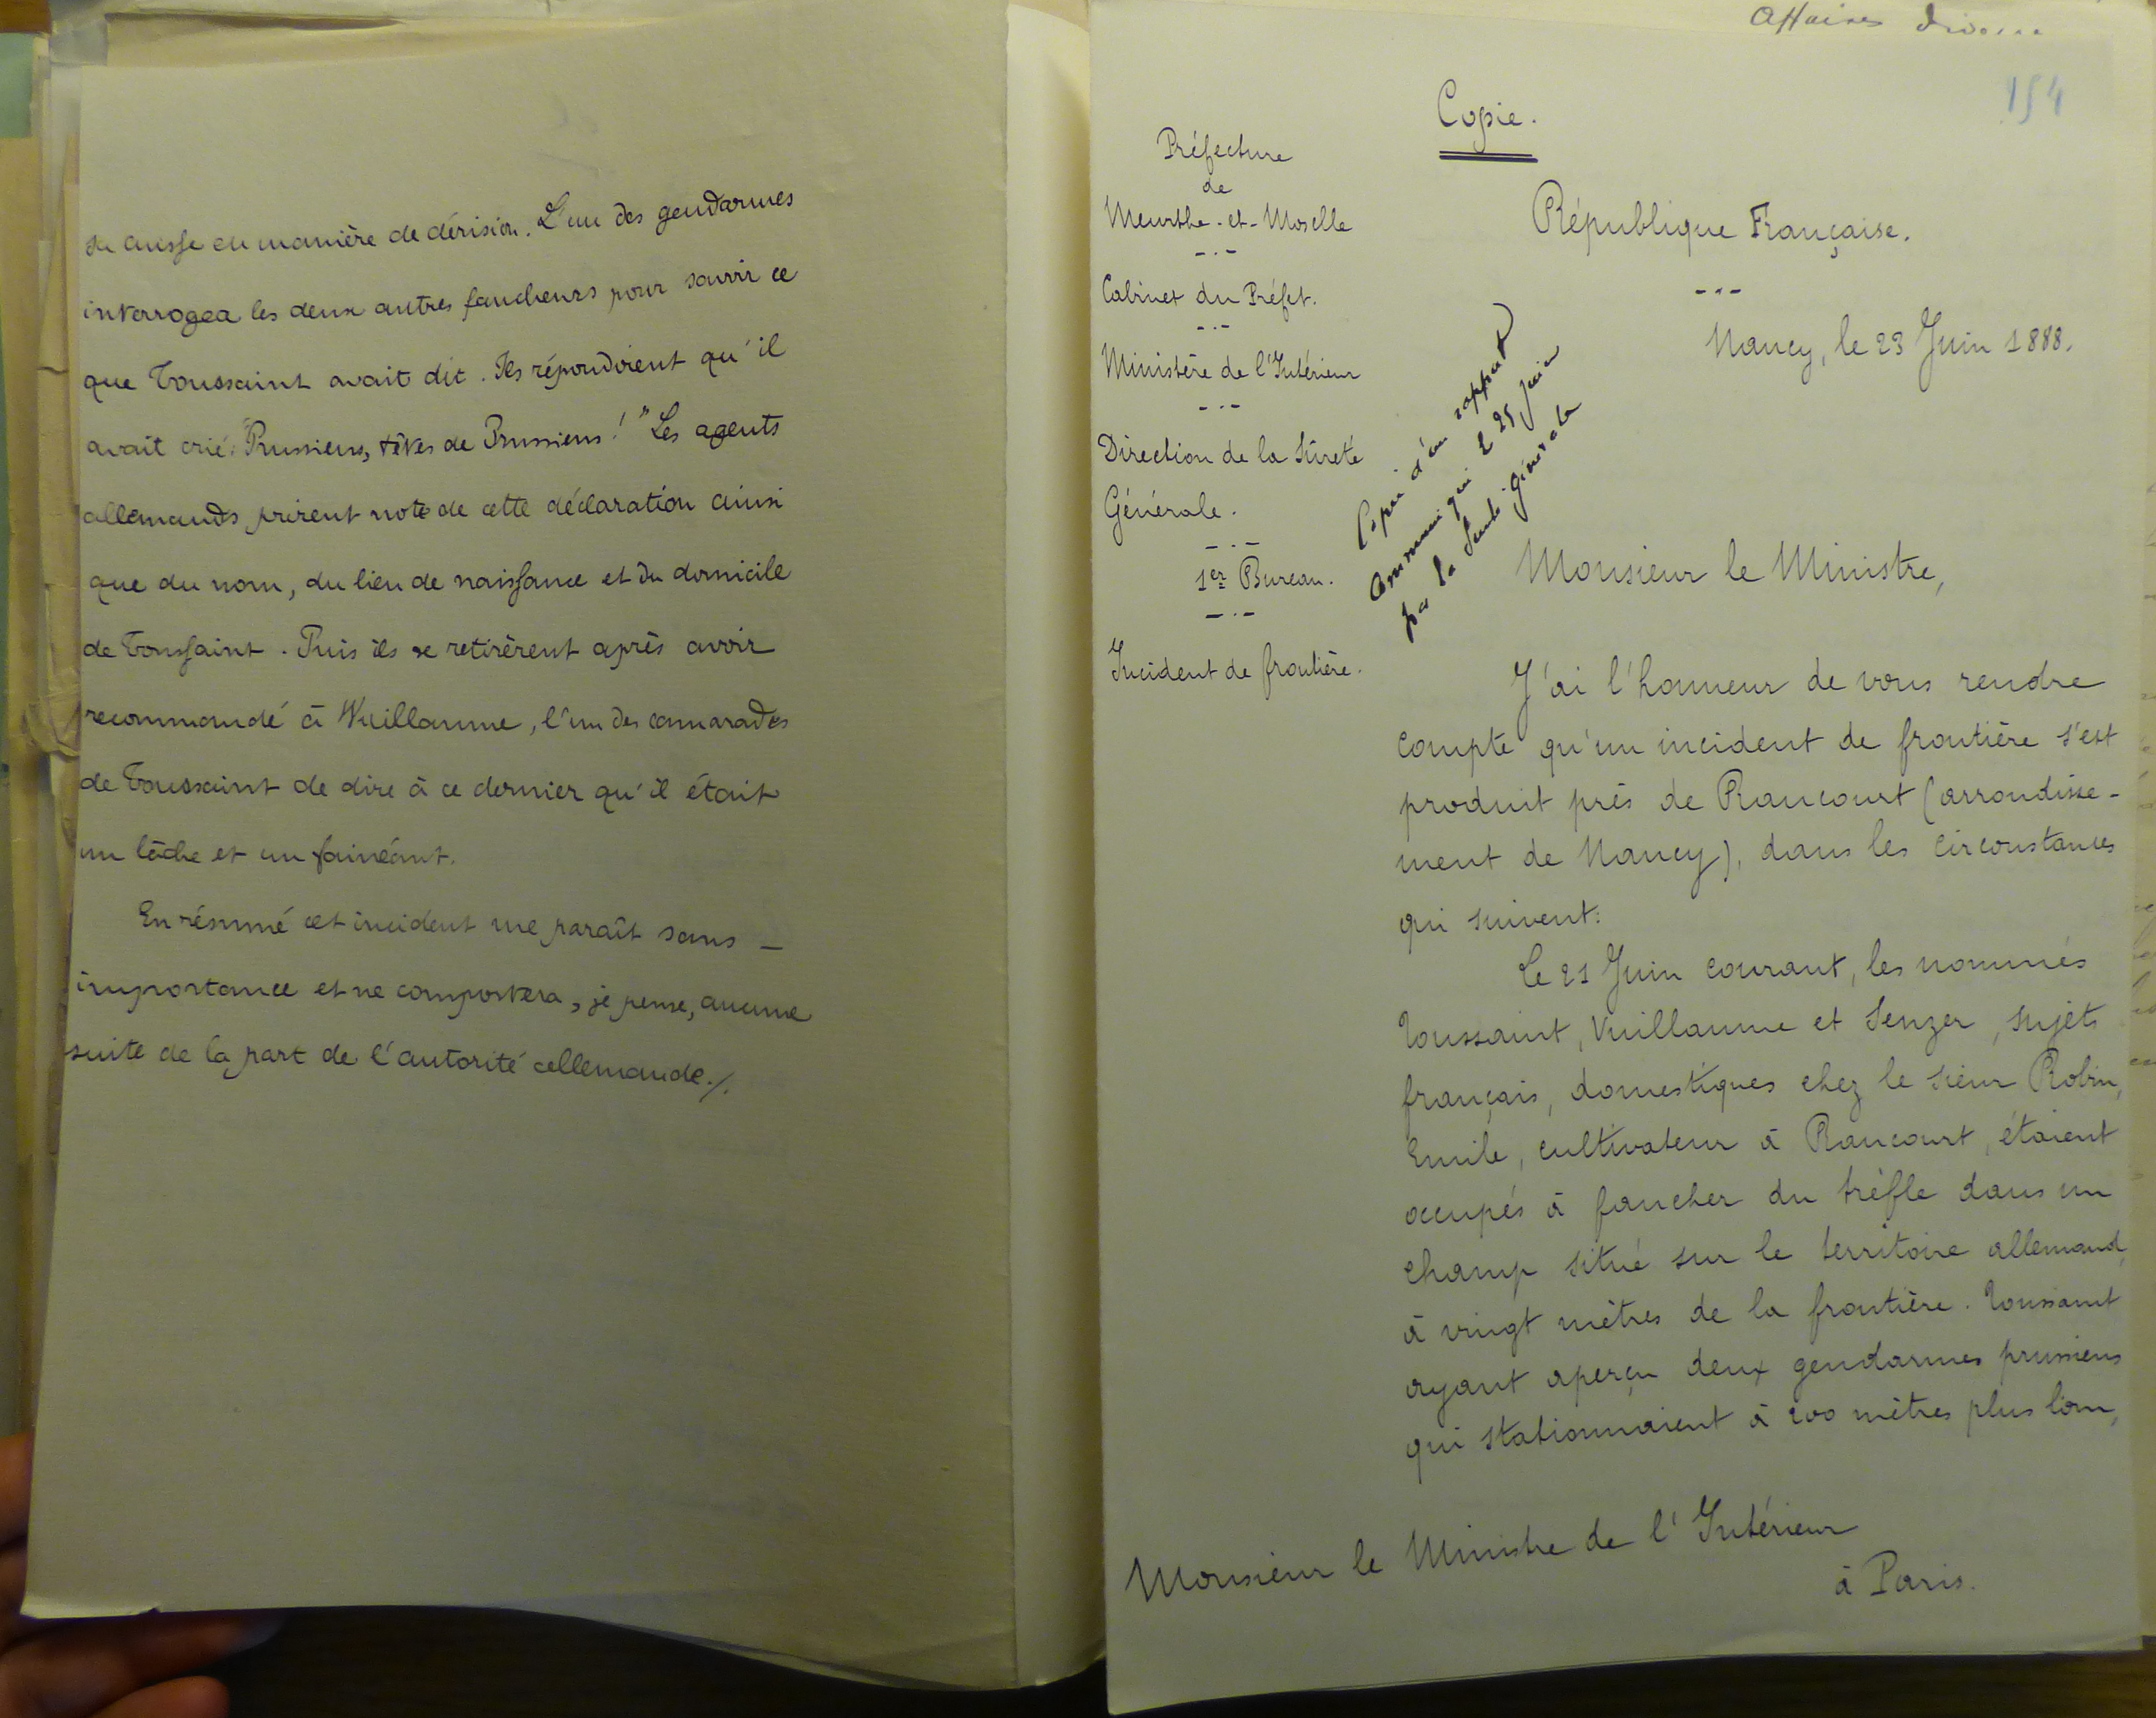 sa cuisse en manière de dérision. L'un des gendarmes
interrogea les deux autres faucheurs pour savoir ce
que Toussaint avait dit. Ils répondirent qu'il
avait crié: "Prussiens, têtes de Prussiens!" Les agents
allemands prirent note de cette déclaration ainsi
que du nom, du lieu de naissance et du domicile
de Toussaint. Puis ils se retirèrent après avoir
recommandé à Wuillaume, l'un des camarades
de Toussaint de dire à ce dernier qu'il était
un lâche et un fainéant.
En résumé cet incident me paraît sans —
importance et ne comportera, je pense, aucune
suite de la part de l'autorité allemande./.
Affaires diverses
154
Copie.
Préfecture
de
Meurthe-et-Moselle
Cabinet du Préfet.
Ministère de l'Intérieur
Direction de la Sûreté
Générale.
1er Bureau.
Incident de frontière.
République Française.
Nancy, le 23 Juin 1888.
Copie d'un rapport
communiqué le 25 juin
par la Sureté générale
Monsieur le Ministre,
J'ai l'honneur de vous rendre
compte qu'un incident de frontière s'est
produit près de Raucourt (arrondisse-
ment de Nancy), dans les circonstances
qui suivent:
Le 21 Juin courant, les nommés
Toussaint, Vuillaume et Senzer, sujets
français, domestiques chez le sieur Robin,
Emile, cultivateur à Raucourt, étaient
occupés à faucher du trèfle dans un
champ situé sur le territoire allemand,
à vingt mètres de la frontière. Toussaint
ayant aperçu deux gendarmes prussiens
qui stationnaient à 200 mètres plus loin,
Monsieur le Ministre de l'Intérieur
à Paris.